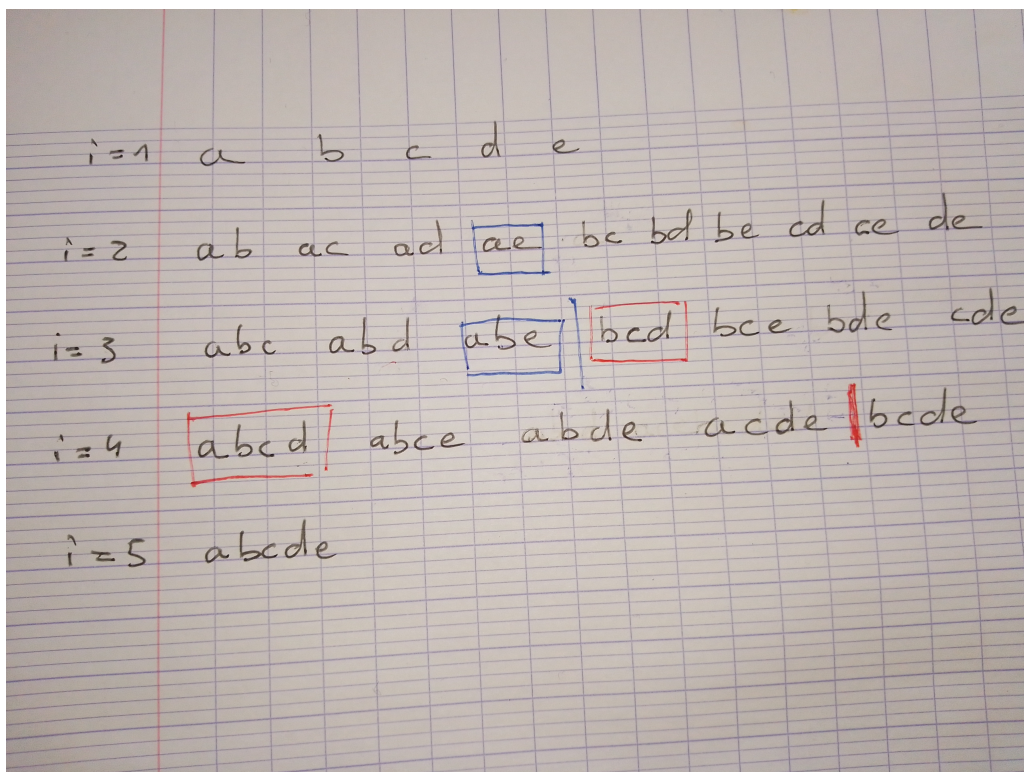 i=1 a b c d e
i=2 ab ac ad ae bc bd be cd ce de
i=3 abc abd abe bcd bce bde cde
i=4 abcd abce abde acde bcde
i=5 abcde